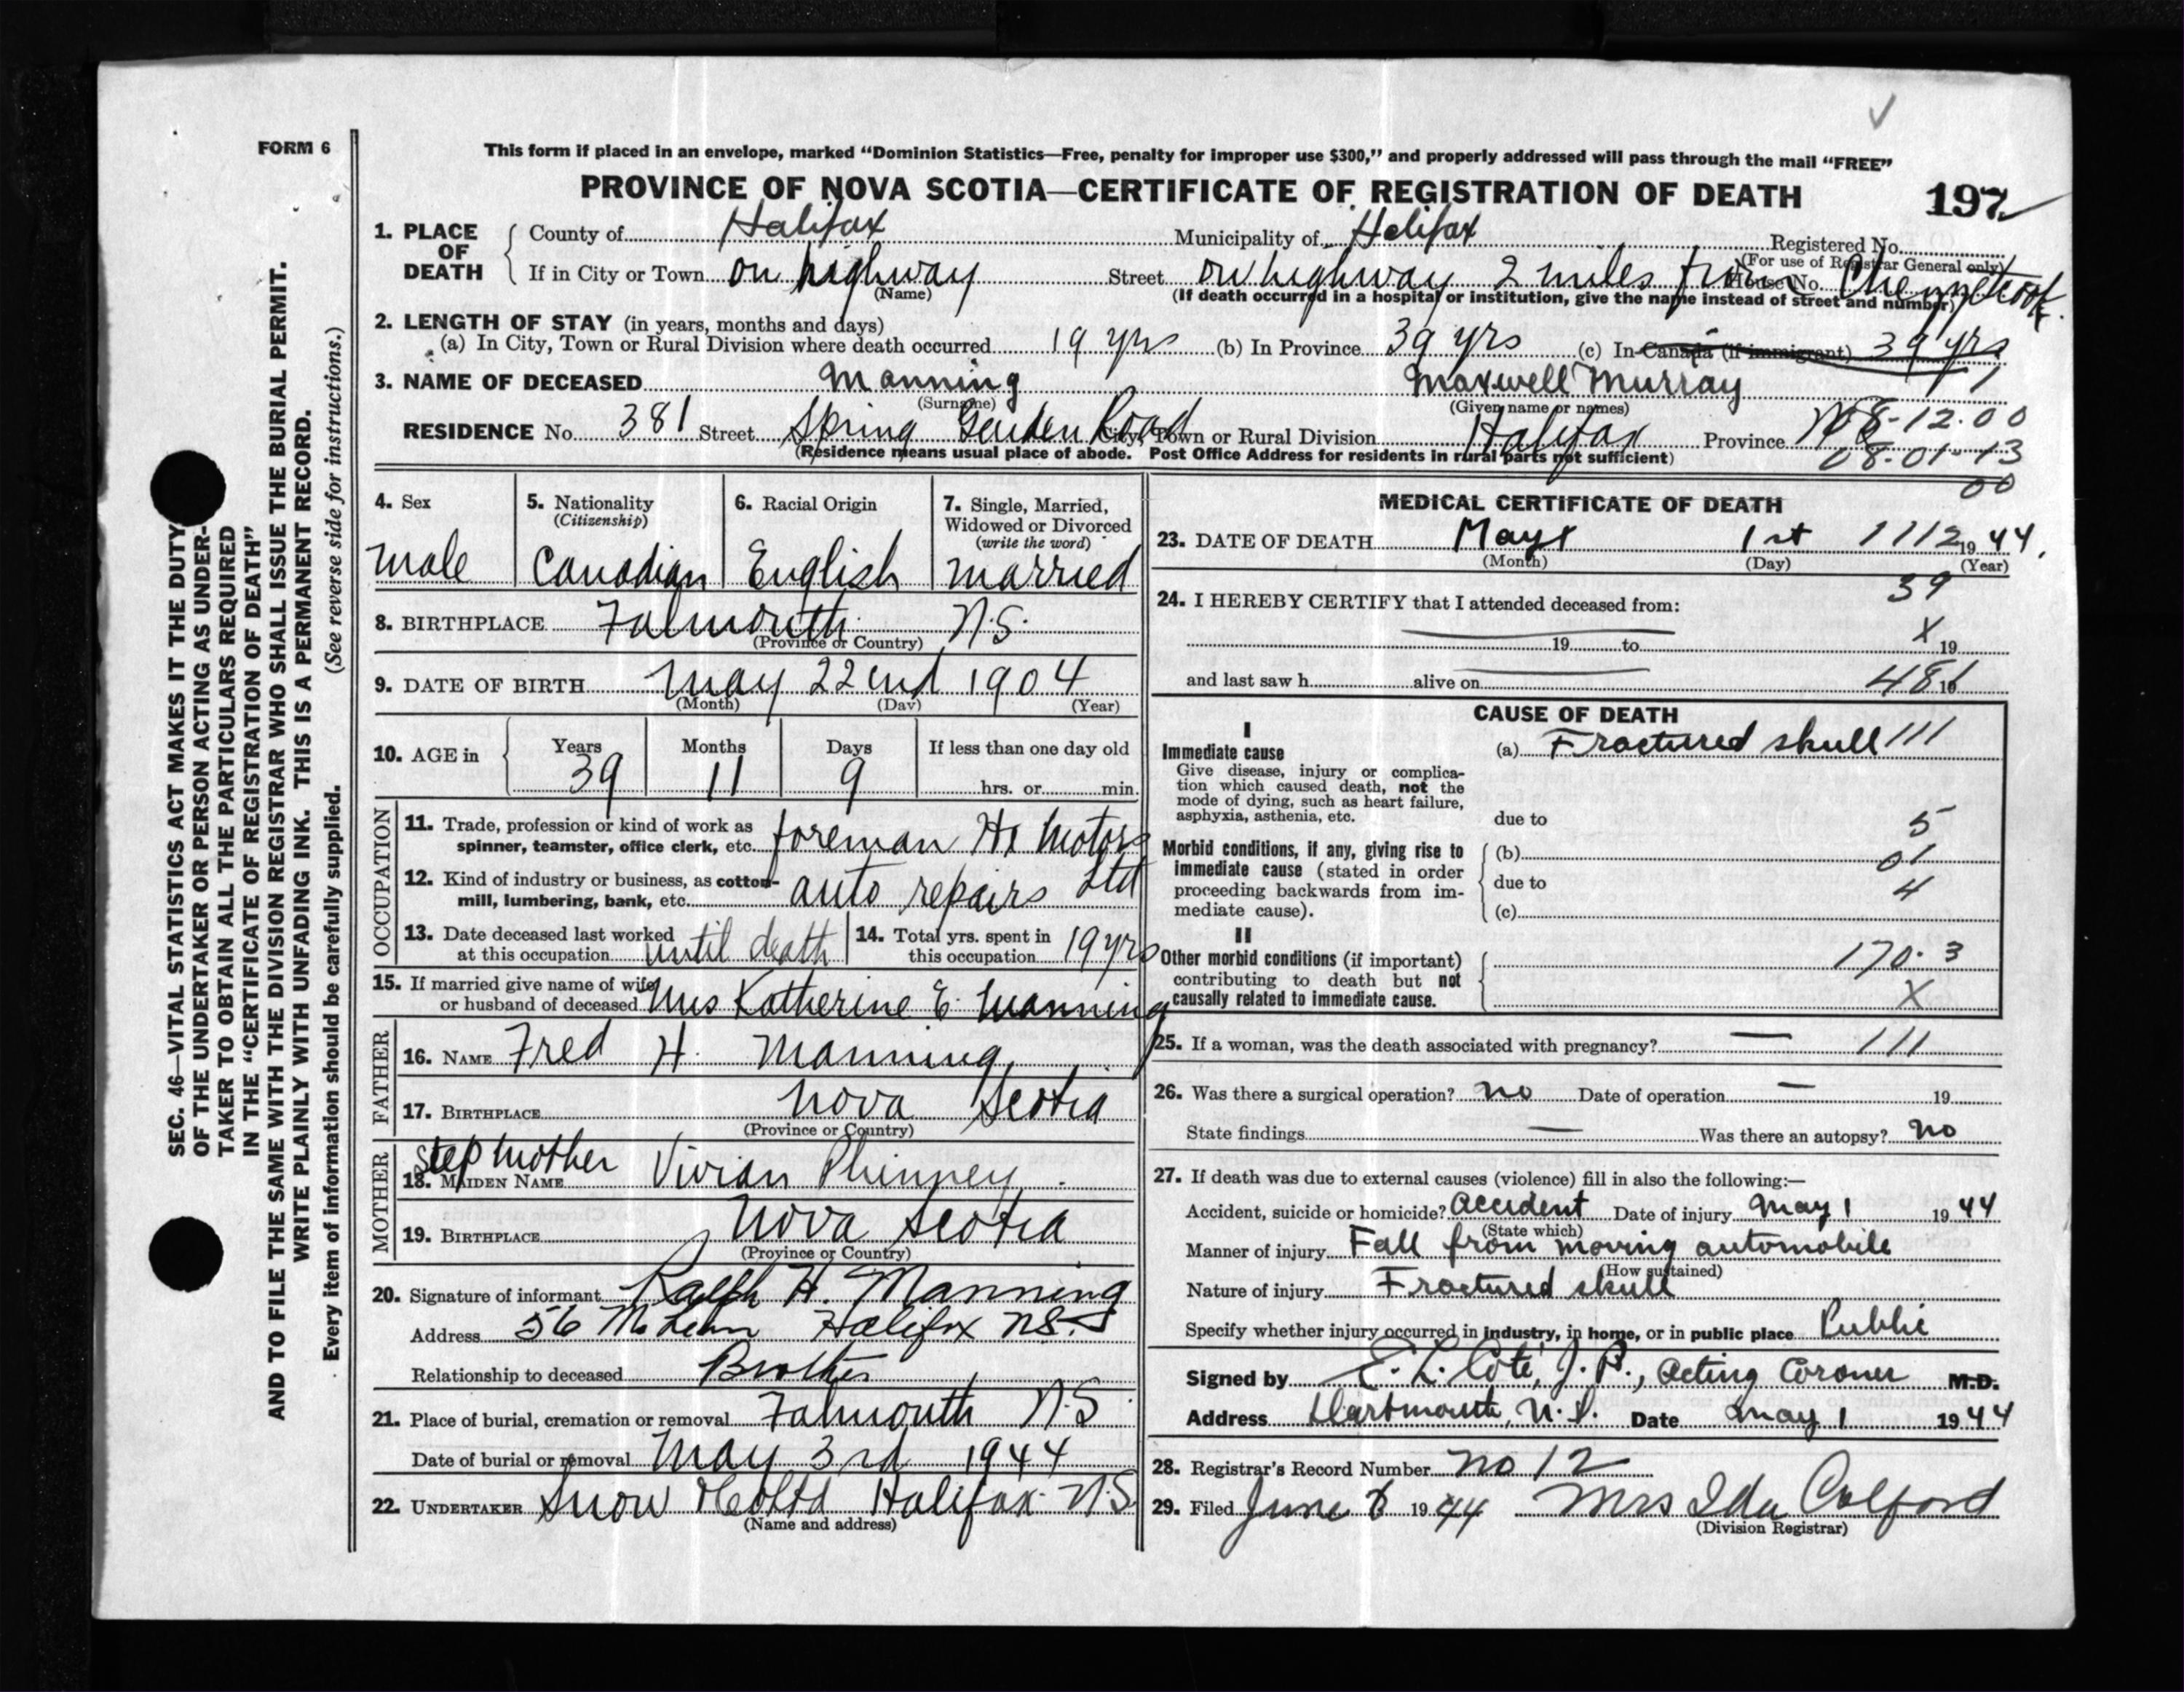 FORM 6
This form if placed in an envelope, marked “Dominion Statistics—Free, penalty for improper use $300,” and properly addressed will pass through the mail “FREE”
PROVINCE OF NOVA SCOTIA—CERTIFICATE OF REGISTRATION OF DEATH 197
1. PLACE OF DEATH County of Halifax Municipality of Halifax Registered No.
(For use of Registrar General only)
If in City or Town on highway Street on highway 2 miles from House No.
(Name) (If death occurred in a hospital or institution, give the name instead of street and number)
2. LENGTH OF STAY (in years, months and days)
(a) In City, Town or Rural Division where death occurred 19 yrs (b) In Province 39 yrs (c) In Canada (if immigrant) 39 yrs
3. NAME OF DECEASED Manning Maxwell Murray
(Surname) (Given name or names)
RESIDENCE No. 381 Street Spring Garden Road City, Town or Rural Division Halifax Province NS
08-12.00
(Residence means usual place of abode. Post Office Address for residents in rural parts not sufficient)
08-01-13
00
4. Sex 5. Nationality (Citizenship) 6. Racial Origin 7. Single, Married, Widowed or Divorced (write the word)
male Canadian English married
8. BIRTHPLACE Falmouth N.S.
(Province or Country)
9. DATE OF BIRTH May 22nd 1904
(Month) (Day) (Year)
10. AGE in Years Months Days If less than one day old
39 11 9 hrs. or min.
OCCUPATION
11. Trade, profession or kind of work as
spinner, teamster, office clerk, etc. foreman Hx Motors
12. Kind of industry or business, as cotton- Ltd
mill, lumbering, bank, etc. auto repairs
13. Date deceased last worked
at this occupation until death
14. Total yrs. spent in
this occupation 19 yrs
15. If married give name of wife
or husband of deceased Mrs Katherine E. Manning
FATHER
16. NAME Fred H. Manning
17. BIRTHPLACE Nova Scotia
(Province or Country)
MOTHER
Step mother
18. MAIDEN NAME Vivian Phinney
19. BIRTHPLACE Nova Scotia
(Province or Country)
20. Signature of informant Ralph H. Manning
Address 56 Halifax NS.
Relationship to deceased Brother
21. Place of burial, cremation or removal Falmouth N.S
Date of burial or removal May 3rd 1944
22. UNDERTAKER Snow Halifax N.S
(Name and address)
MEDICAL CERTIFICATE OF DEATH
23. DATE OF DEATH May 1st 1112 1944.
(Month) (Day) (Year)
39
24. I HEREBY CERTIFY that I attended deceased from:
X
19 to 19
and last saw h alive on 481 19
CAUSE OF DEATH
I
Immediate cause (a) Fractured skull 111
Give disease, injury or complica-
tion which caused death, not the
mode of dying, such as heart failure,
asphyxia, asthenia, etc. due to 5
Morbid conditions, if any, giving rise to (b) 01
immediate cause (stated in order
proceeding backwards from im- due to 4
mediate cause). (c)
II
Other morbid conditions (if important) 170.3
contributing to death but not
causally related to immediate cause. X
25. If a woman, was the death associated with pregnancy? — 111
26. Was there a surgical operation? no Date of operation — 19
State findings — Was there an autopsy? no
27. If death was due to external causes (violence) fill in also the following:—
Accident, suicide or homicide? Accident Date of injury May 1 1944
(State which)
Manner of injury Fall from moving automobile
(How sustained)
Nature of injury Fractured skull
Specify whether injury occurred in industry, in home, or in public place Public
Signed by E. L. Coté, J. P., Acting Coroner M.D.
Address Dartmouth, N.S. Date May 1 1944
28. Registrar's Record Number no 12
29. Filed June 1944 Mrs Ida Colford
(Division Registrar)
SEC. 46—VITAL STATISTICS ACT MAKES IT THE DUTY
OF THE UNDERTAKER OR PERSON ACTING AS UNDER-
TAKER TO OBTAIN ALL THE PARTICULARS REQUIRED
IN THE “CERTIFICATE OF REGISTRATION OF DEATH”
AND TO FILE THE SAME WITH THE DIVISION REGISTRAR WHO SHALL ISSUE THE BURIAL PERMIT.
WRITE PLAINLY WITH UNFADING INK. THIS IS A PERMANENT RECORD.
Every item of information should be carefully supplied. (See reverse side for instructions.)